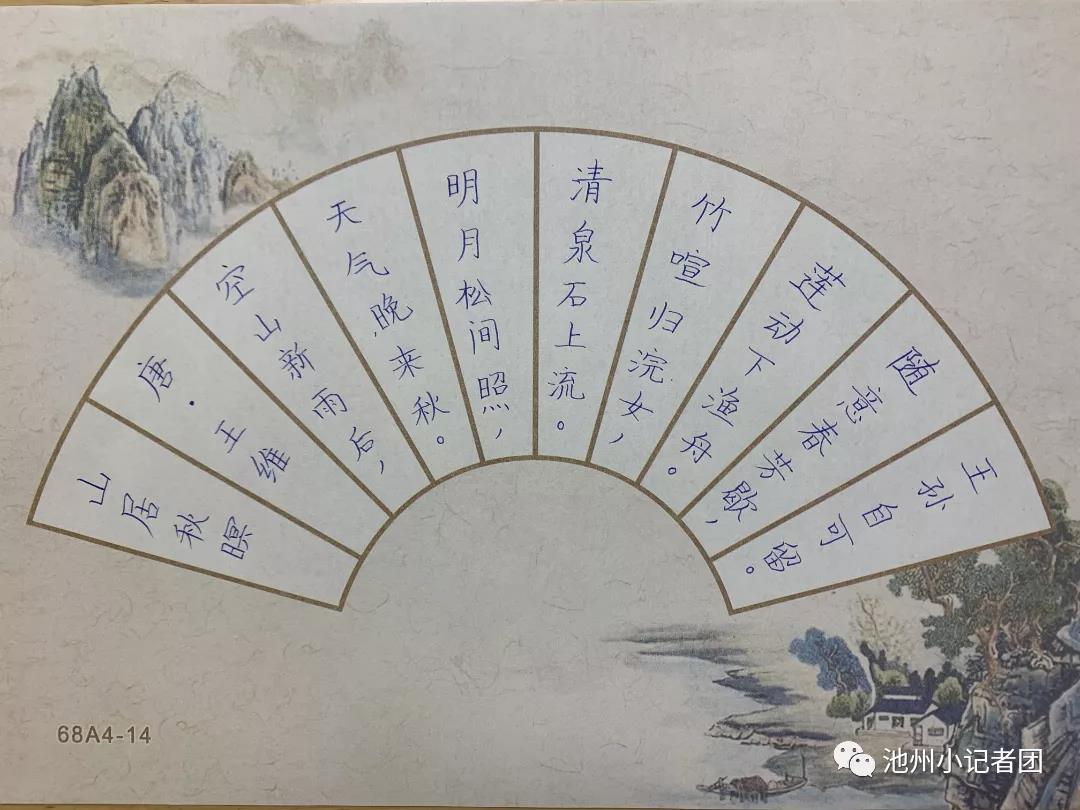 山居秋暝
唐·王维
空山新雨后,
天气晚来秋。
明月松间照,
清泉石上流。
竹喧归浣女,
莲动下渔舟。
随意春芳歇,
王孙自可留。
68A4-14
池州小记者团